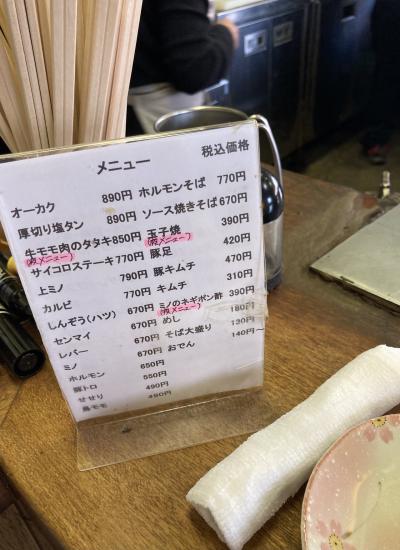 メニュー 税込価格
オーカク 890円
厚切り塩タン 890円
牛モモ肉のタタキ850円
(裏メニュー)
サイコロステーキ770円
上ミノ 790円
カルビ 770円
しんぞう(ハツ) 670円
センマイ 670円
レバー 670円
ミノ 670円
ホルモン 650円
豚トロ 550円
せせり 490円
鳥モモ 490円
ホルモンそば 770円
ソース焼きそば670円
玉子焼 390円
(裏メニュー)
豚足 420円
豚キムチ 470円
キムチ 310円
ミノのネギポン酢 390円
(裏メニュー)
めし 180円
そば大盛り 130円
おでん 140円~